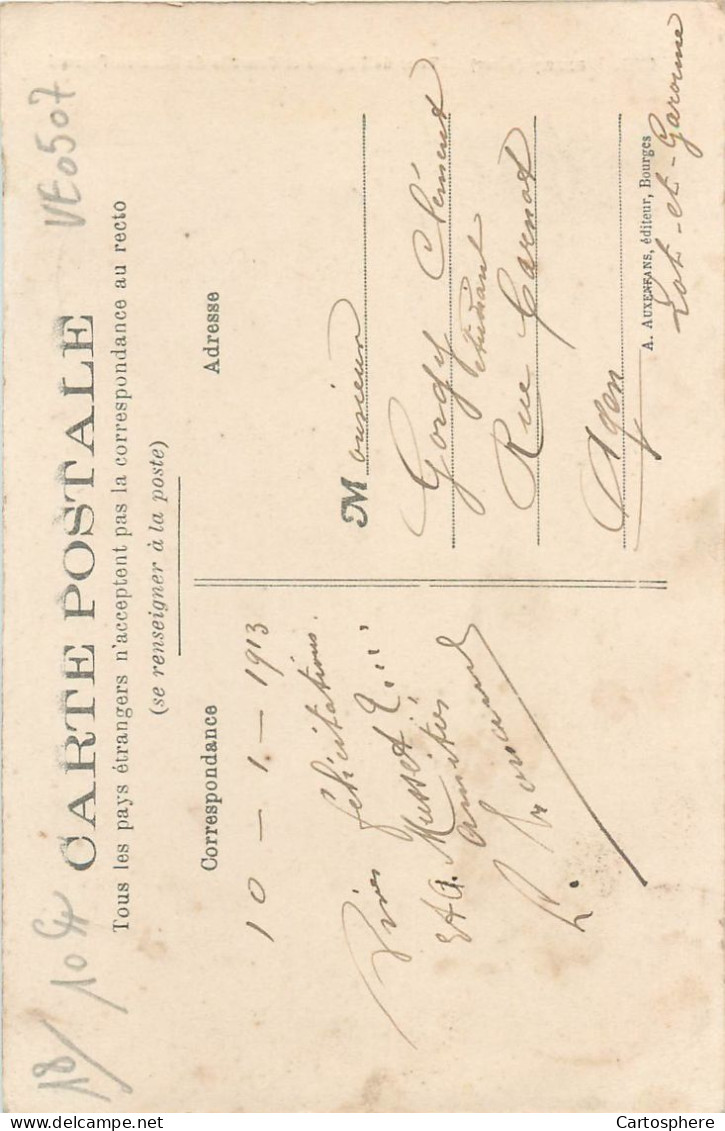 18/ 10 VE0507
CARTE POSTALE
Tous les pays étrangers n'acceptent pas la correspondance au recto
(se renseigner à la poste)
Correspondance
10 – 1 – 1913
félicitations.
Et A. Musset ?...
Amitiés
Adresse
Monsieur
Gorgy Clément
étudiant
Rue Carnot
Agen
Lot-et-Garonne
A. AUXENFANS, éditeur, Bourges
Cartosphere